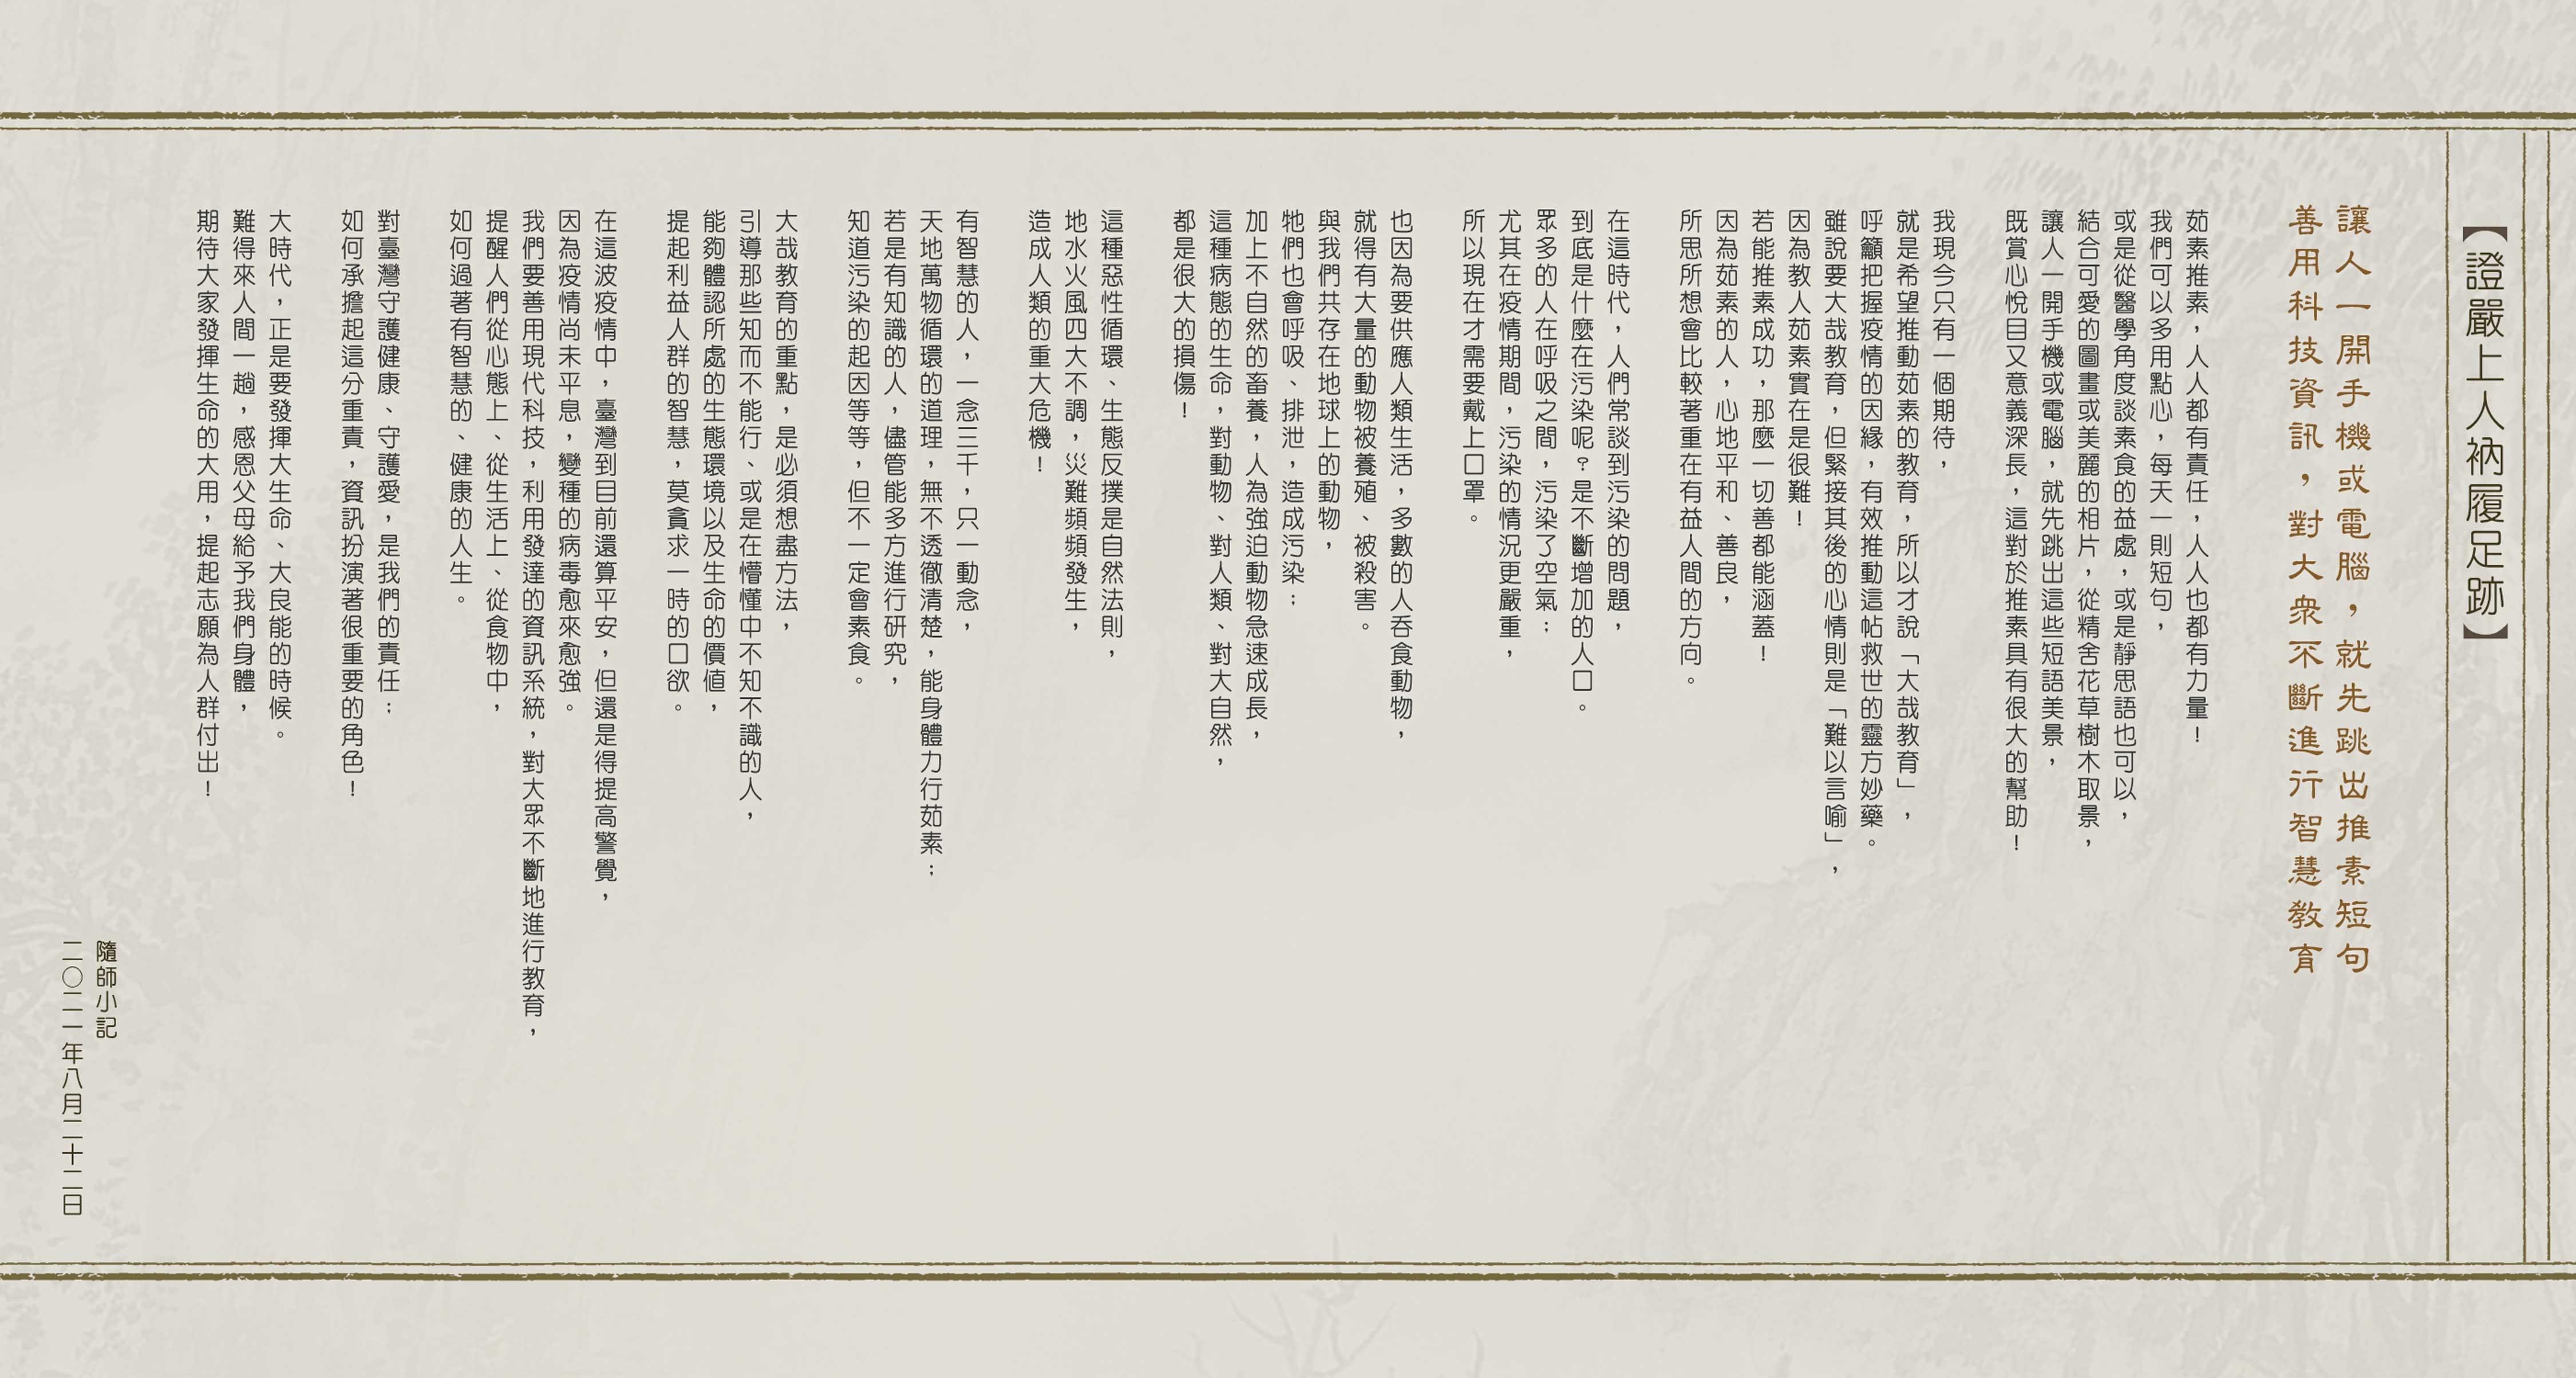 【證嚴上人衲履足跡】
讓人一開手機或電腦，就先跳出推素短句
善用科技資訊，對大眾不斷進行智慧教育
茹素推素，人人都有責任，人人也都有力量！
我們可以多用點心，每天一則短句，
或是從醫學角度談素食的益處，或是靜思語也可以，
結合可愛的圖畫或美麗的相片，從精舍花草樹木取景，
讓人一開手機或電腦，就先跳出這些短語美景，
既賞心悅目又意義深長，這對於推素具有很大的幫助！
我現今只有一個期待，
就是希望推動茹素的教育，所以才說「大哉教育」，
呼籲把握疫情的因緣，有效推動這帖救世的靈方妙藥。
雖說要大哉教育，但緊接其後的心情則是「難以言喻」，
因為教人茹素實在是很難！
若能推素成功，那麼一切善都能涵蓋！
因為茹素的人，心地平和、善良，
所思所想會比較著重在有益人間的方向。
在這時代，人們常談到污染的問題，
到底是什麼在污染呢？是不斷增加的人口。
眾多的人在呼吸之間，污染了空氣；
尤其在疫情期間，污染的情況更嚴重，
所以現在才需要戴上口罩。
也因為要供應人類生活，多數的人吞食動物，
就得有大量的動物被養殖、被殺害。
與我們共存在地球上的動物，
牠們也會呼吸、排泄，造成污染；
加上不自然的畜養，人為強迫動物急速成長，
這種病態的生命，對動物、對人類、對大自然，
都是很大的損傷！
這種惡性循環、生態反撲是自然法則，
地水火風四大不調，災難頻頻發生，
造成人類的重大危機！
有智慧的人，一念三千，只一動念，
天地萬物循環的道理，無不透徹清楚，能身體力行茹素；
若是有知識的人，儘管能多方進行研究，
知道污染的起因等等，但不一定會素食。
大哉教育的重點，是必須想盡方法，
引導那些知而不能行、或是在懵懂中不知不識的人，
能夠體認所處的生態環境以及生命的價值，
提起利益人群的智慧，莫貪求一時的口欲。
在這波疫情中，臺灣到目前還算平安，但還是得提高警覺，
因為疫情尚未平息，變種的病毒愈來愈強。
我們要善用現代科技，利用發達的資訊系統，對大眾不斷地進行教育，
提醒人們從心態上、從生活上、從食物中，
如何過著有智慧的、健康的人生。
對臺灣守護健康、守護愛，是我們的責任；
如何承擔起這分重責，資訊扮演著很重要的角色！
大時代，正是要發揮大生命、大良能的時候。
難得來人間一趟，感恩父母給予我們身體，
期待大家發揮生命的大用，提起志願為人群付出！
隨師小記
二〇二一年八月二十二日